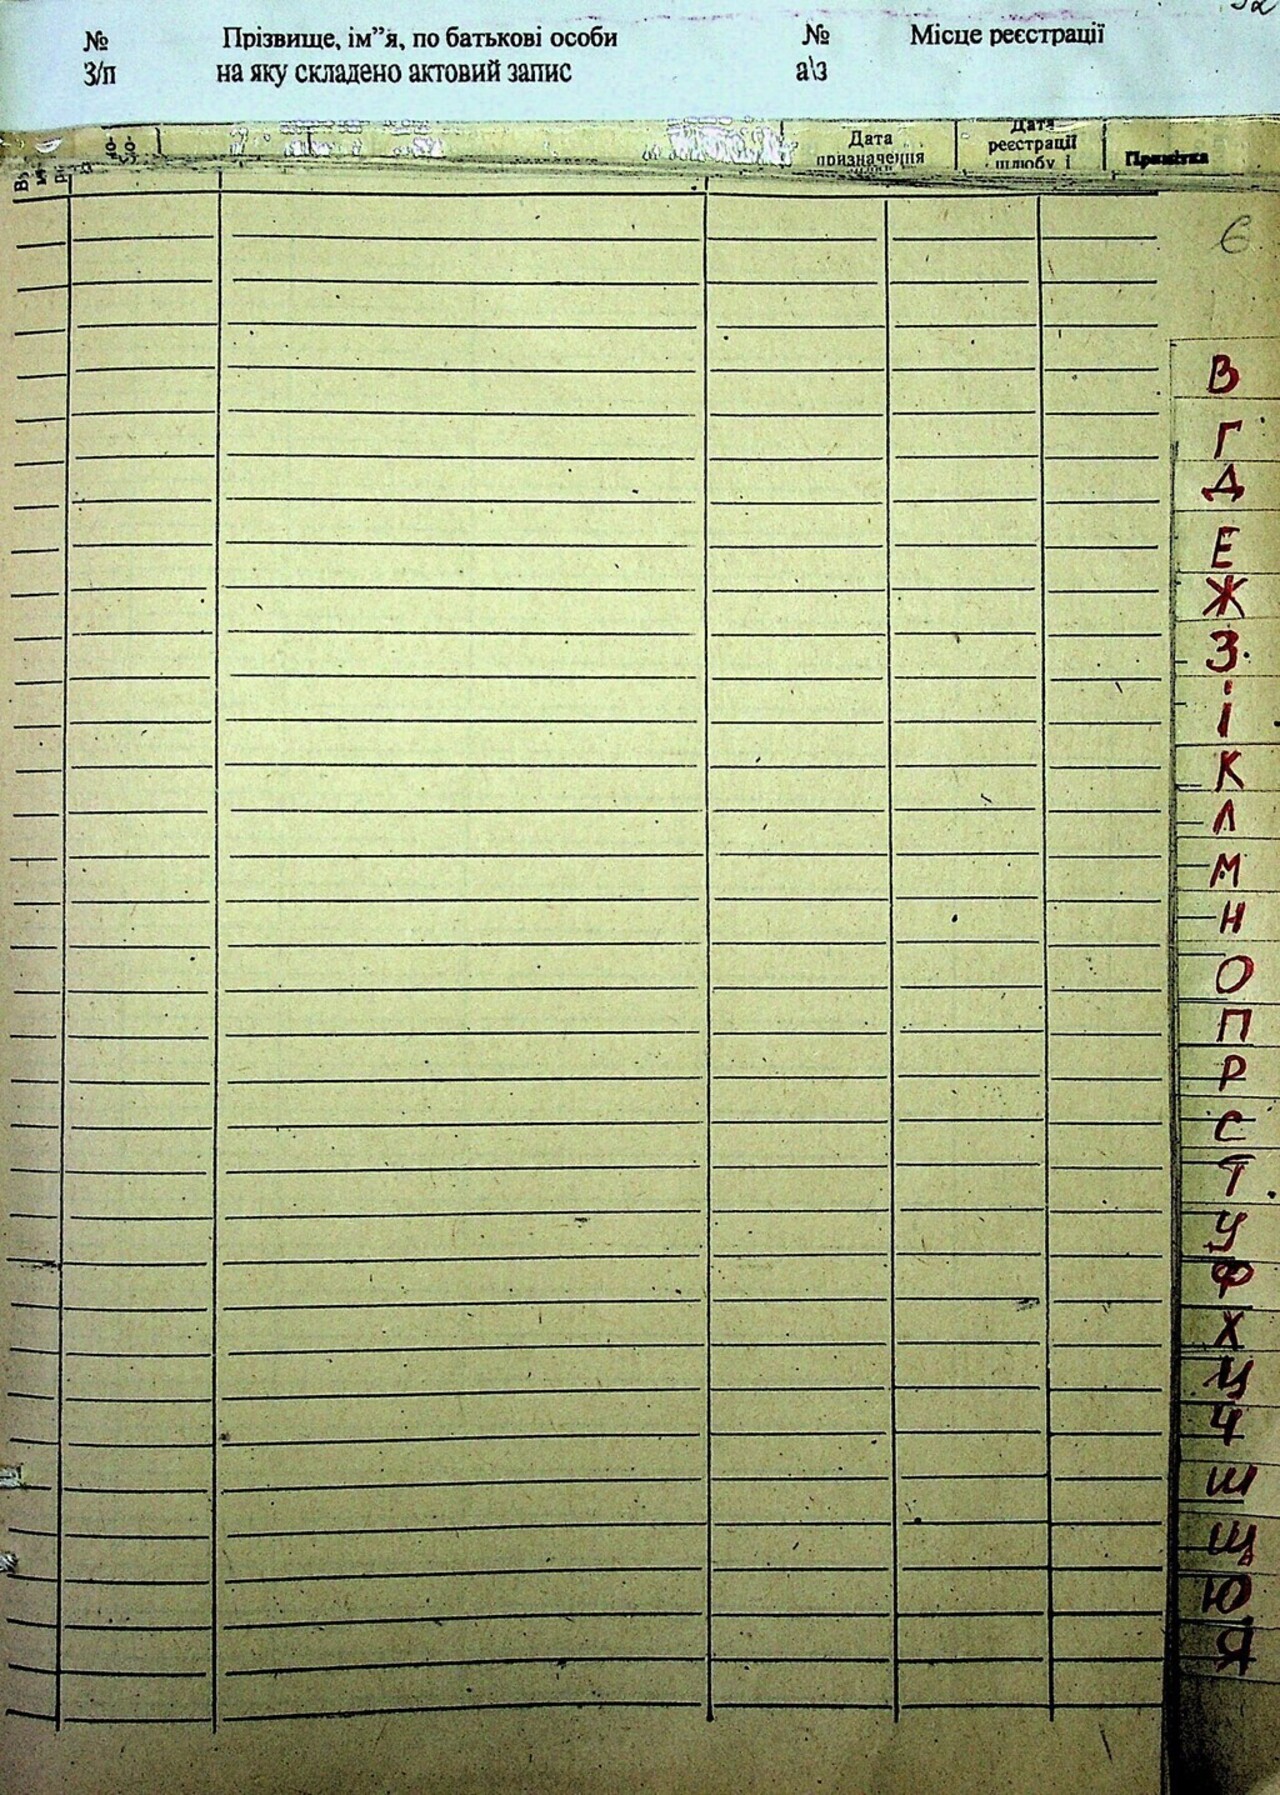 № Прізвище, ім”я, по батькові особи № Місце реєстрації
З/п на яку складено актовий запис а\з
Дата
призначення
Дата
реєстрації
шлюбу і
Примітка
6
В
Г
Д
Е
Ж
З
І
К
Л
М
Н
О
П
Р
С
Т
У
Ф
Х
Ц
Ч
Ш
Щ
Ю
Я